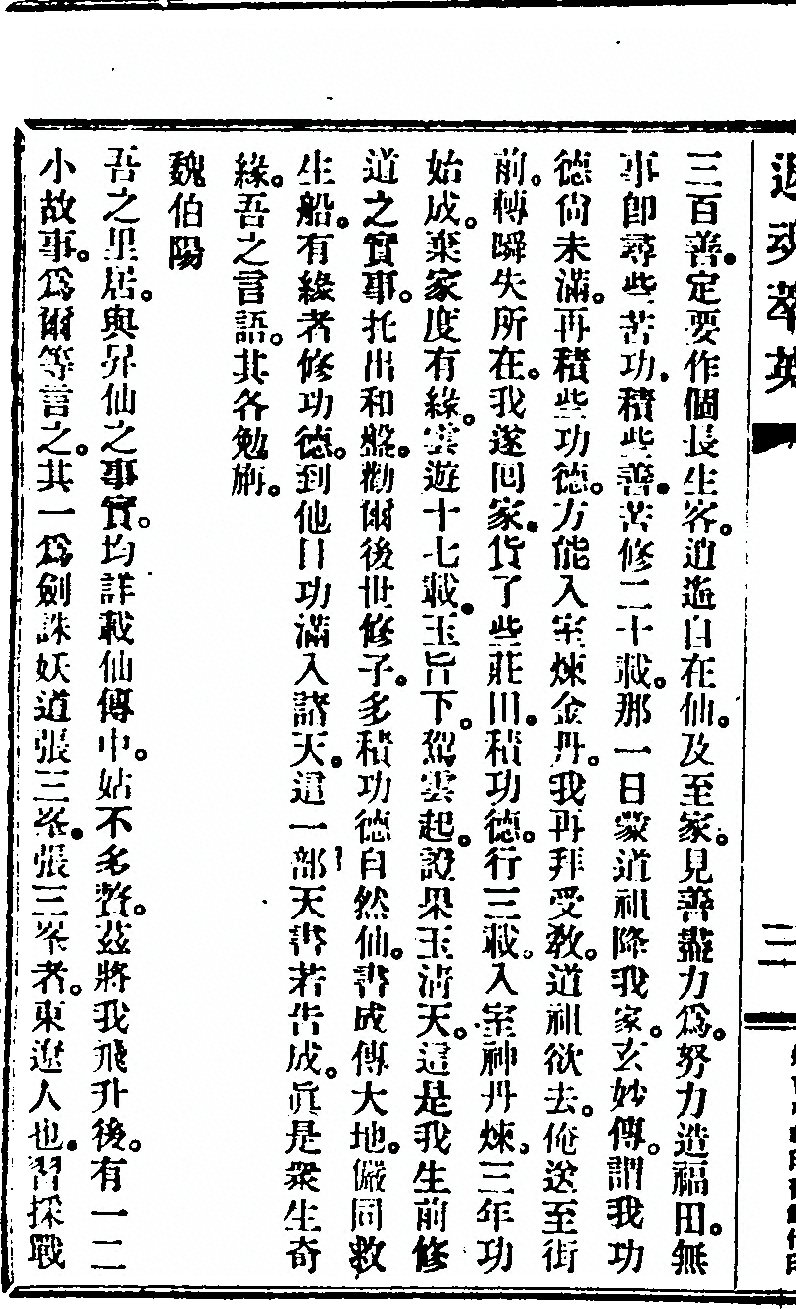 三百善。定要作個長生客。逍遙自在仙。及至家。見善盡力爲。努力造福田。無
事卽尋些苦功。積些善。苦修二十載。那一日蒙道祖降我家。玄妙傳。謂我功
德尙未滿。再積些功德。方能入室煉金丹。我再拜受敎。道祖欲去。俺送至街
前。轉瞬失所在。我遂回家。貨了些莊田。積功德。行三載。入室神丹煉。三年功
始成。棄家度有緣。雲遊十七載。玉旨下。駕雲起。證果玉淸天。這是我生前修
道之實事。托出和盤。勸爾後世修子。多積功德自然仙。書成傳大地。儼同救
生船。有緣者修功德。到他日功滿入諸天。這一部天書若告成。眞是衆生奇
緣。吾之言語。其各勉旃。
魏伯陽
吾之里居。與昇仙之事實。均詳載仙傳中。姑不多贅。茲將我飛升後。有一二
小故事。爲爾等言之。其一爲劍誅妖道張三峯。張三峯者。東遼人也。習採戰
三